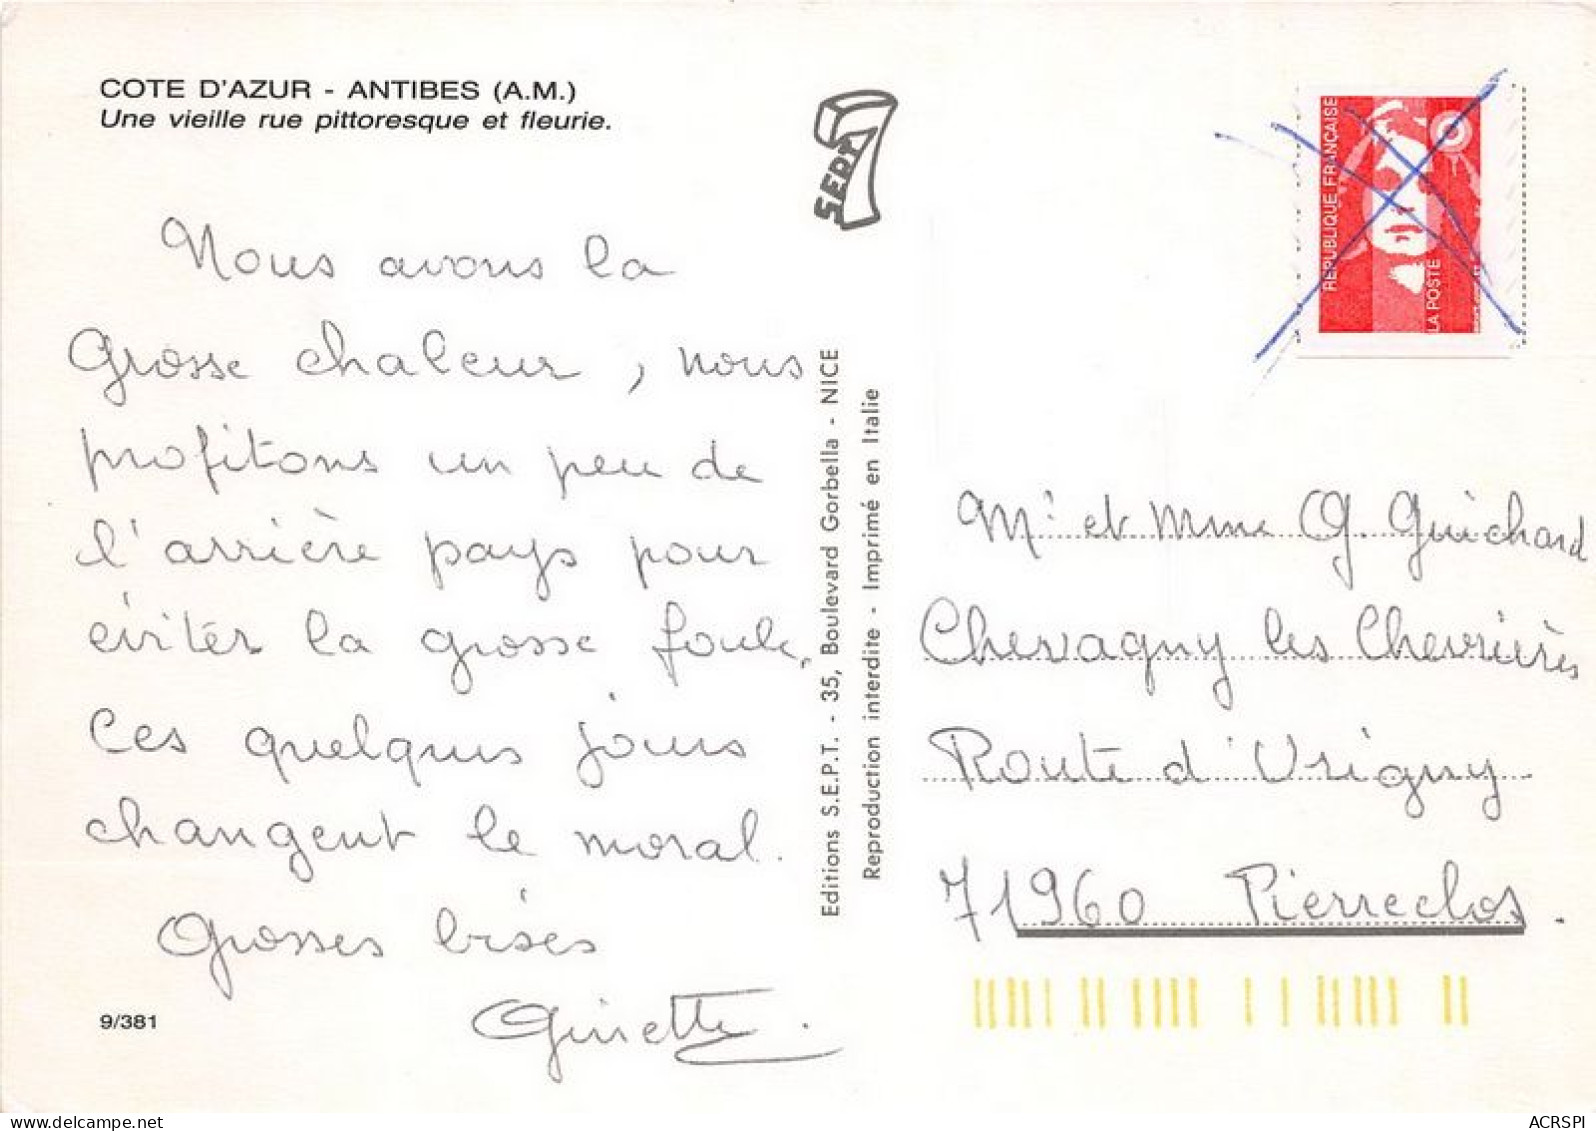 COTE D'AZUR - ANTIBES (A.M.)
Une vieille rue pittoresque et fleurie.
SEPT
7
RÉPUBLIQUE FRANÇAISE
LA POSTE
Nous avons la
grosse chaleur, nous
profitons un peu de
l'arrière pays pour
éviter la grosse foule,
Ces quelques jours
changent le moral.
Grosses bises
Ginette.
9/381
Editions S.E.P.T. - 35, Boulevard Gorbella - NICE
Reproduction interdite - Imprimé en Italie
Mr et Mme G. Guichard
Chevagny les Chevrières
Route d'Urigny
71960 Pierreclos.
ACRSPI
delcampe.net